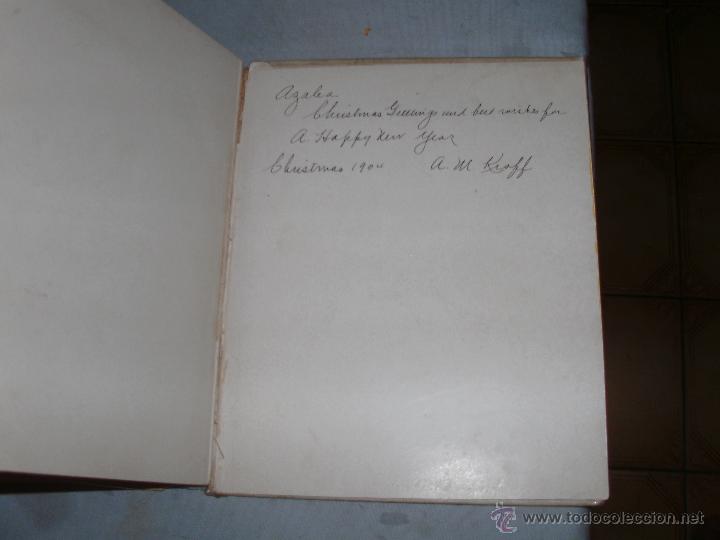 Azalea
Christmas Greetings and best wishes for
A. Happy New Year
Christmas 1904 A. M Kroff
www.todocoleccion.net